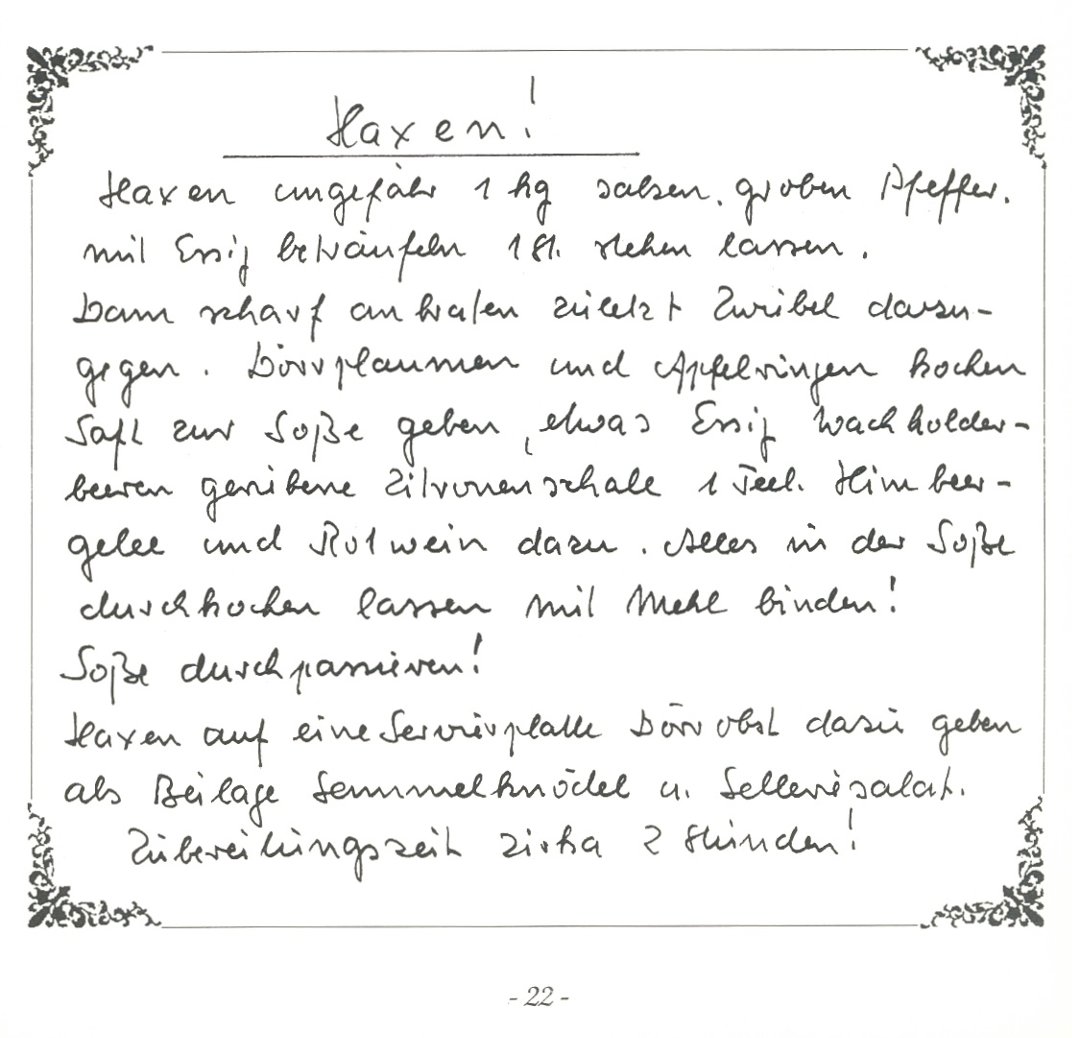 Haxen!
Haxen ungefähr 1 kg salzen, groben Pfeffer.
mit Essig beträufeln 1 St. stehen lassen.
Dann scharf anbraten zuletzt Zwibel dazu-
gegen. Dörrplaumen und Apfelringen kochen
Saft zur Soße geben, etwas Essig Wachholder-
beeren geribene Zitronenschale 1 Teel. Himbeer-
gelee und Rotwein dazu. Alles in der Soße
durchkochen lassen mit Mehl binden!
Soße durchpassieren!
Haxen auf eine Servierplatte Dörrobst dazu geben
als Beilage Semmelknödel u. Selleriesalat.
Zubereitungszeit zirka 2 Stunden!
- 22 -